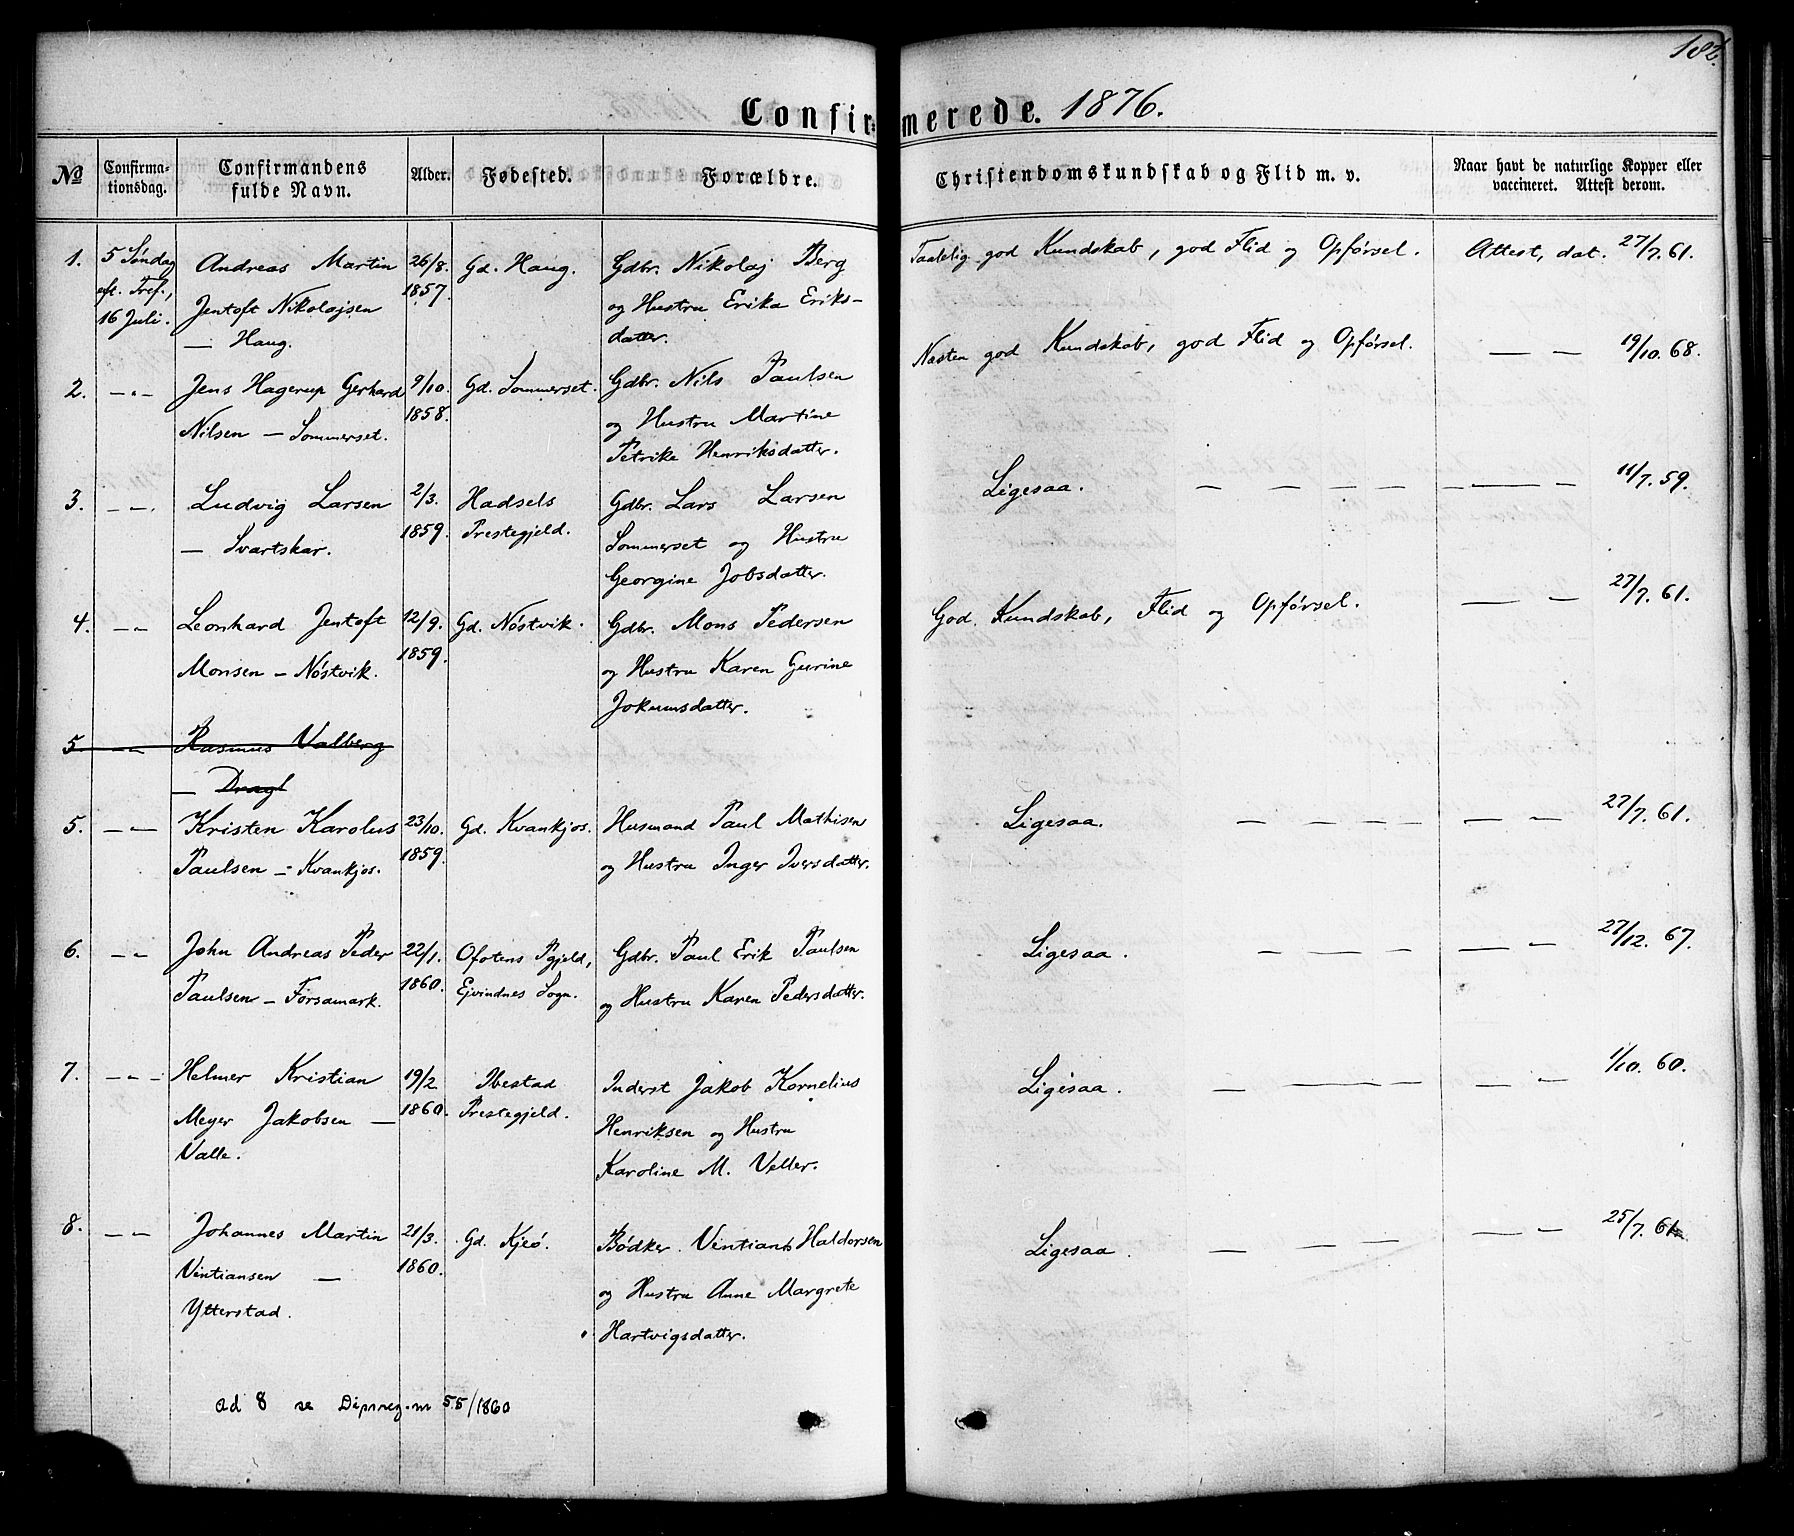 182.
Confirmerede. 1876.
№
Confirma-
tionsdag.
Confirmandens
fulde Navn.
Alder.
Fødested.
Forældre.
Christendomskundskab og Flid m. v.
Naar havt de naturlige Kopper eller
vaccineret. Attest derom.
1. 5 Søndag Andreas Martin 26/8. Gd. Haug. Gdbr. Nikolaj Berg Taalelig god Kundskab, god Flid og Opførsel. Attest, dat. 27/7. 61.
eft. Tref., Jentoft Nikolajsen 1857. og Hustru Erika Eriks-
16 Juli. — Haug. datter.
2. —„— Jens Hagerup Gerhard 9/10. Gd. Sommerset. Gdbr. Nils Paulsen Næsten god Kundskab, god Flid og Opførsel. — — 19/10. 68.
Nilsen — Sommerset. 1858. og Hustru Martine
Petrike Henriksdatter.
3. —„— Ludvig Larsen 2/3. Hadsels Gdbr. Lars Larsen Ligesaa. — — — — — — — 11/7. 59.
— Svartskar. 1859. Prestegjeld. Sommerset og Hustru
Georgine Jobsdatter.
4. —„— Leonhard Jentoft 12/9. Gd. Nøstvik. Gdbr. Mons Pedersen God Kundskab, Flid og Opførsel. — — 27/7. 61.
Monsen — Nøstvik. 1859. og Hustru Karen Gurine
Jokumsdatter.
5. —„— Rasmus Valberg
— Dragl
5. —„— Kristen Karolus 23/10. Gd. Kvankjos. Husmand Paul Mathisen Ligesaa. — — — — — — 27/7. 61.
Paulsen — Kvankjos. 1859. og Hustru Inger Iversdatter.
6. —„— John Andreas Peder 22/1. Ofotens Pgjeld, Gdbr. Paul Erik Paulsen Ligesaa. — — — — — — 27/12. 67.
Paulsen — Forsamark. 1860. Ejvindnes Sogn. og Hustru Karen Pedersdatter.
7. —„— Helmer Kristian 19/2 Ibestad Inderst Jakob Kornelius Ligesaa. — — — — — — 1/10. 60.
Meyer Jakobsen — 1860. Prestegjeld. Henriksen og Hustru
Valle. Karoline M. Veller.
8. —„— Johannes Martin 21/3. Gd. Kjeø. Bødker Vintians Haldorsen Ligesaa. — — — — — 25/7. 61.
Vintiansen — 1860. og Hustru Anne Margrete
Ytterstad. Hartvigsdatter.
ad 8 se 55/1860